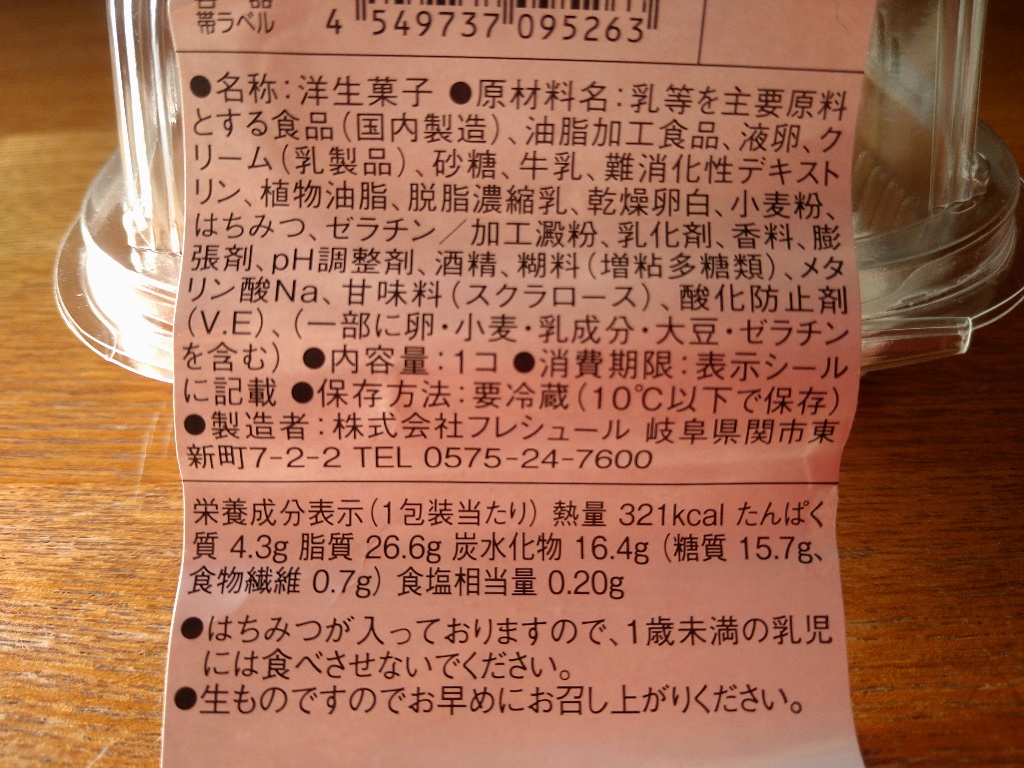 帯ラベル
4 549737 095263
●名称:洋生菓子 ●原材料名:乳等を主要原料
とする食品(国内製造)、油脂加工食品、液卵、ク
リーム(乳製品)、砂糖、牛乳、難消化性デキスト
リン、植物油脂、脱脂濃縮乳、乾燥卵白、小麦粉、
はちみつ、ゼラチン/加工澱粉、乳化剤、香料、膨
張剤、pH調整剤、酒精、糊料(増粘多糖類)、メタ
リン酸Na、甘味料(スクラロース)、酸化防止剤
(V.E)、(一部に卵・小麦・乳成分・大豆・ゼラチン
を含む) ●内容量:1コ ●消費期限:表示シール
に記載 ●保存方法:要冷蔵(10℃以下で保存)
●製造者:株式会社フレシュール 岐阜県関市東
新町7-2-2 TEL 0575-24-7600
栄養成分表示(1包装当たり) 熱量 321kcal たんぱく
質 4.3g 脂質 26.6g 炭水化物 16.4g (糖質 15.7g、
食物繊維 0.7g) 食塩相当量 0.20g
●はちみつが入っておりますので、1歳未満の乳児
には食べさせないでください。
●生ものですのでお早めにお召し上がりください。